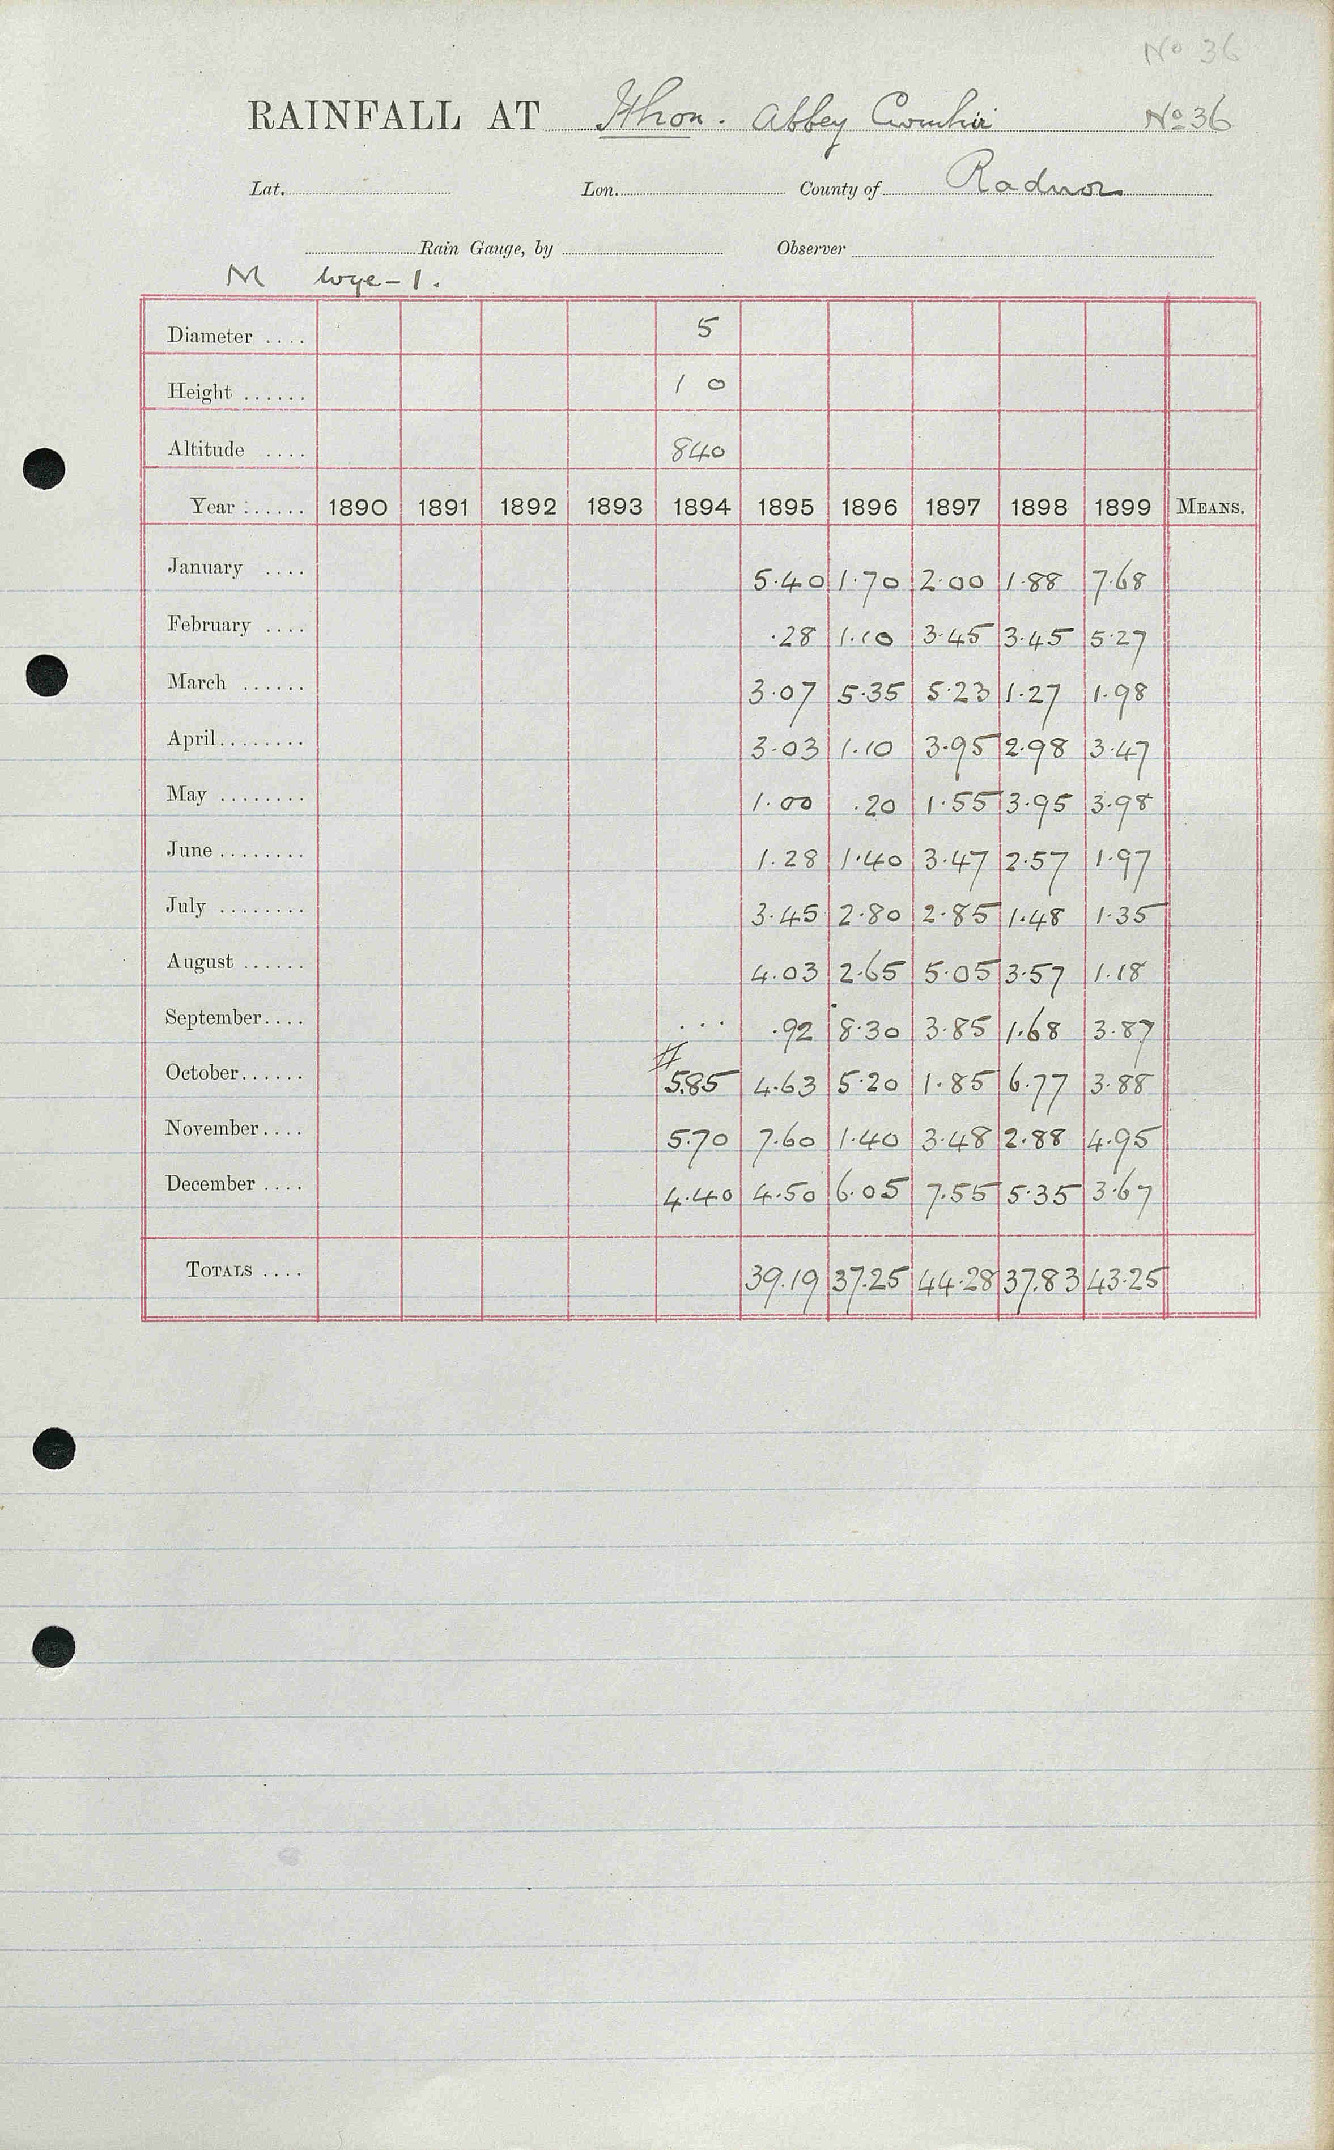 No 36
RAINFALL AT Ithon. Abbey Cwmhir No 36
Lat. Lon. County of Radnor
Rain Gauge, by Observer
M Wye-1.
Diameter .... 5
Height ...... 1 0
Altitude .... 840
Year ...... 1890 1891 1892 1893 1894 1895 1896 1897 1898 1899 MEANS.
January .... 5.40 1.70 2.00 1.88 7.68
February .... .28 1.10 3.45 3.45 5.27
March ...... 3.07 5.35 5.23 1.27 1.98
April........ 3.03 1.10 3.95 2.98 3.47
May ........ 1.00 .20 1.55 3.95 3.98
June ........ 1.28 1.40 3.47 2.57 1.97
July ........ 3.45 2.80 2.85 1.48 1.35
August ...... 4.03 2.65 5.05 3.57 1.18
September.... ... .92 8.30 3.85 1.68 3.87
October...... # 5.85 4.63 5.20 1.85 6.77 3.88
November.... 5.70 7.60 1.40 3.48 2.88 4.95
December .... 4.40 4.50 6.05 7.55 5.35 3.67
TOTALS .... 39.19 37.25 44.28 37.83 43.25